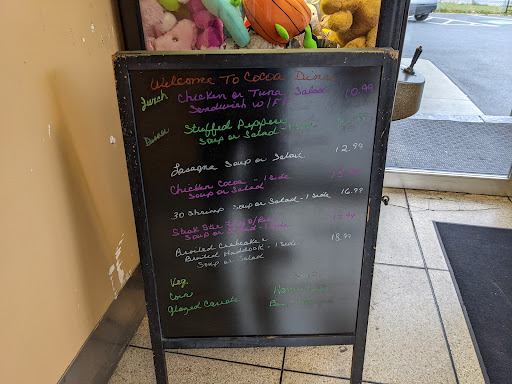 Welcome To Cocoa Diner
Lunch Chicken or Tuna Salad 10.99
Sandwich w/F
Dinner Stuffed Peppers
Soup or Salad - 1 Side
Lasagna Soup or Salad 12.99
Chicken Cocoa - 1 Side
Soup or Salad
30 Shrimp Soup or Salad - 1 Side 16.99
Steak Stir Fry w/Rice
Soup or Salad - 1 Side
Broiled Crabcake & 18.99
Broiled Haddock - 1 Side
Soup or Salad
Veg.
Corn
Glazed Carrots